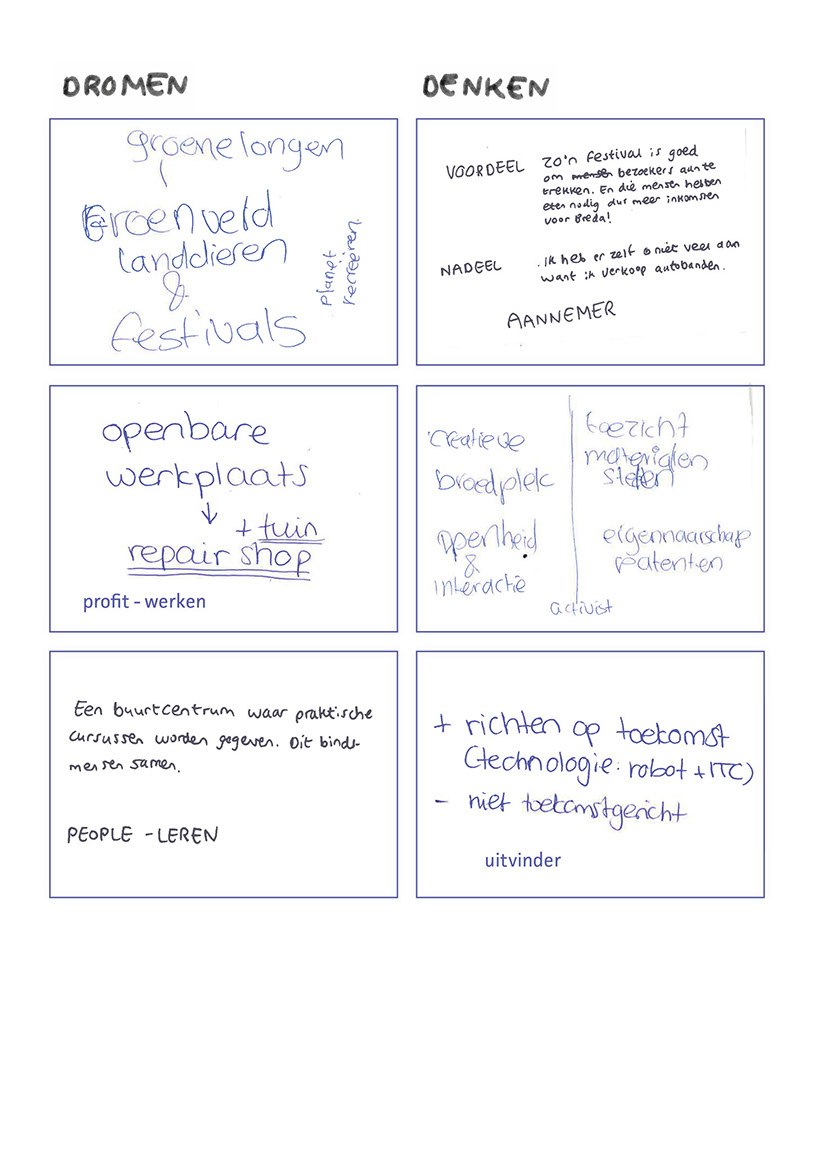 DROMEN
groene longen
Groenveld
landdieren
&
festivals
planet
recreëren.
openbare
werkplaats
↓ + tuin
repair shop
profit - werken
Een buurtcentrum waar praktische
cursussen worden gegeven. Dit bindt
mensen samen.
PEOPLE - LEREN
DENKEN
VOORDEEL
Zo'n festival is goed
om mensen bezoekers aan te
trekken. En die mensen hebben
eten nodig dus meer inkomsten
voor Breda!
NADEEL
. Ik heb er zelf niet veel aan
want ik verkoop autobanden.
AANNEMER
creatieve
broedplek
openheid
&
interactie
toezicht
materialen
stelen
eigennaarschap
patenten
activist
+ richten op toekomst
(technologie: robot + ITC)
- niet toekomstgericht
uitvinder